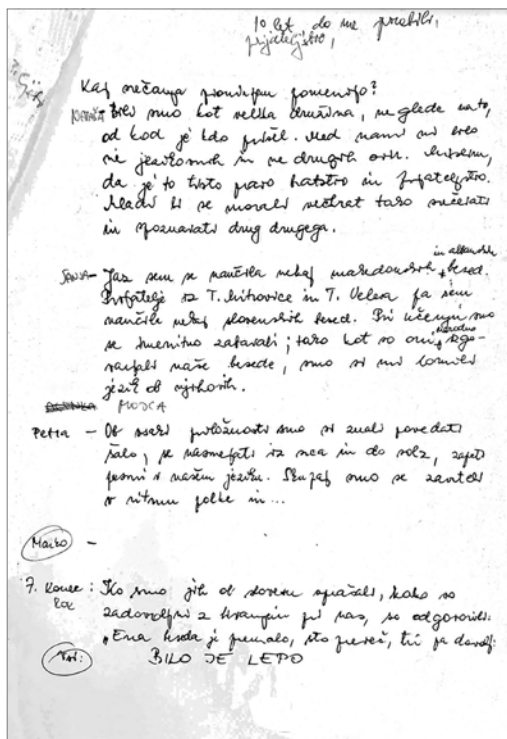 10 let do
prijateljstvo,
Kaj srečanja pomenijo?
NATAŠA Bili smo kot velika družina, ne glede na to,
od kod je kdo prišel. Med nami ni bilo
ne jezikovnih in ne drugih ovir. Mislim,
da je to tisto pravo bratstvo in prijateljstvo.
Mladi bi se morali večkrat tako srečevati
in spoznavati drug drugega.
in albanskih
SANJA – Jaz sem se naučila nekaj makedonskih besed.
Prijatelje iz T. Mitrovice in T. Velesa pa sem
naučila nekaj slovenskih besed. Pri učenju smo
se imenitno zabavali; tako kot so oni
naše besede, smo si mi lomili
jezik ob njihovih.
MOJCA
Petra – Ob vsaki priložnosti smo si znali povedati
šalo, se nasmejati iz srca in do solz, zapeti
pesmi v našem jeziku. Skupaj smo se zavrteli
v ritmu polke in ...
Marko –
7. Konec: Ko smo jih ob slovesu vprašali, kako so
ROK
zadovoljni z bivanjem pri nas, so odgovorili:
"Ena beseda je premalo, sto preveč, tri pa dovolj:
Vsi: BILO JE LEPO